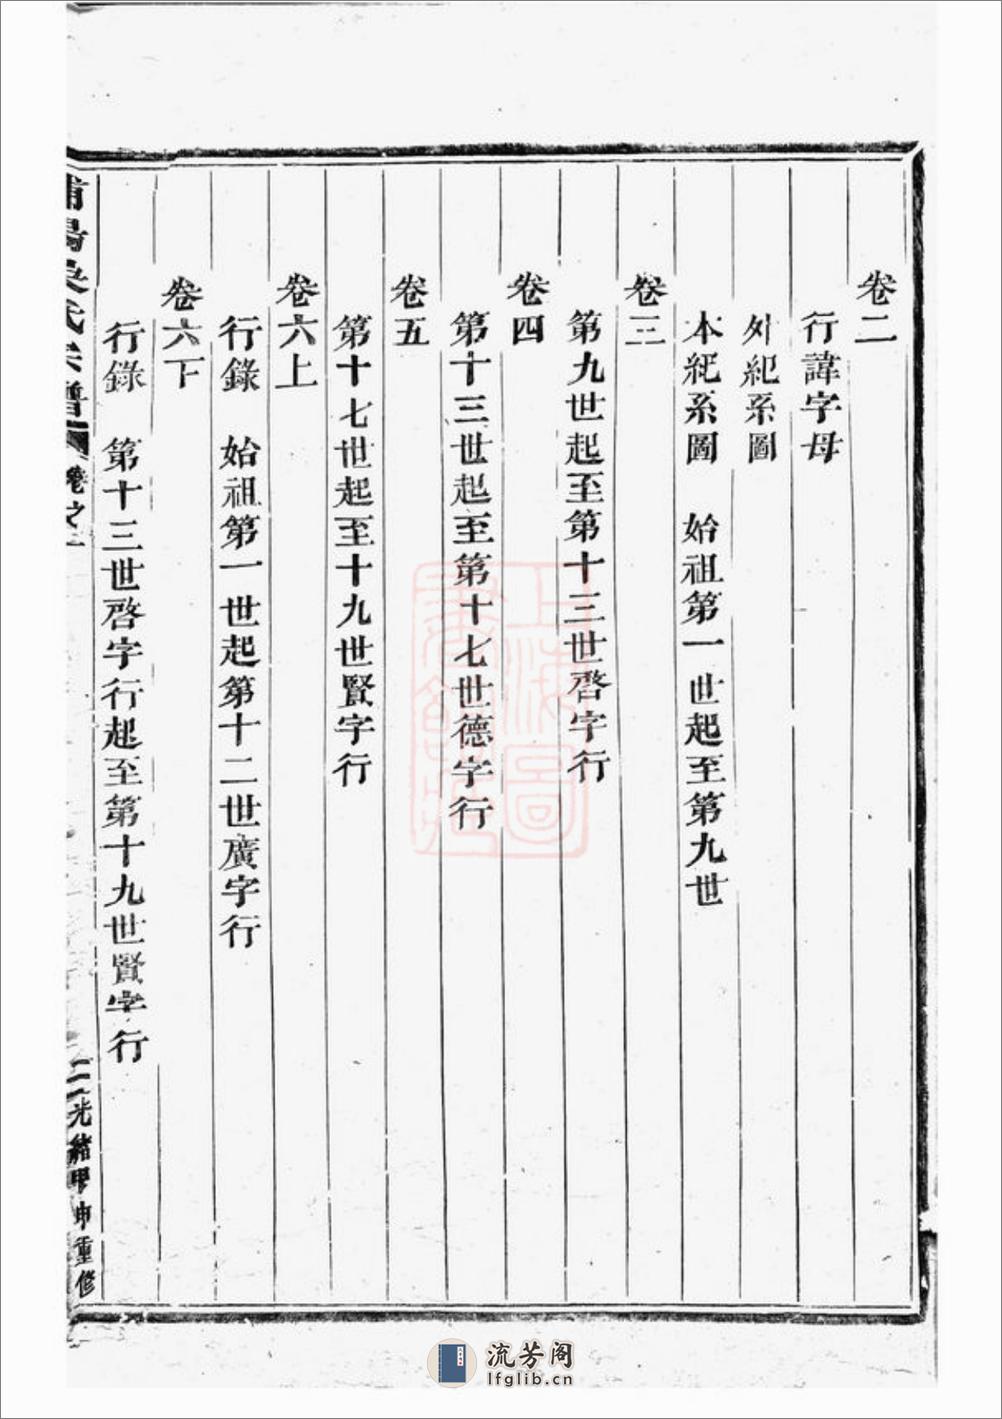 卷二
行諱字母
外紀系圖
本紀系圖　始祖第一世起至第九世
卷三
第九世起至第十三世啓字行
卷四
第十三世起至第十七世德字行
卷五
第十七世起至十九世賢字行
卷六上
行錄　始祖第一世起第十二世廣字行
卷六下
行錄　第十三世啓字行起至第十九世賢字行
浦陽吳氏宗譜 卷之一 二 光緒甲申重修
上海圖書館藏
流芳阁
lfglib.cn